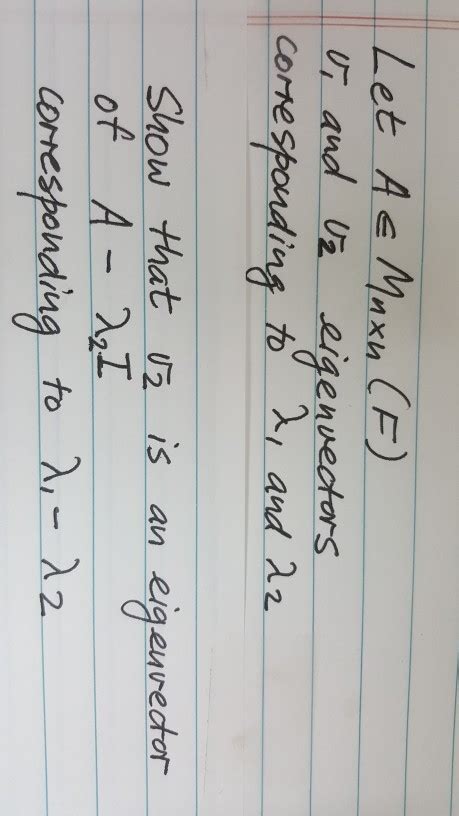 Let A ∈ Mn×n (F)
v1 and v2 eigenvectors
corresponding to λ1 and λ2
Show that v2 is an eigenvector
of A - λ2I
corresponding to λ1 - λ2